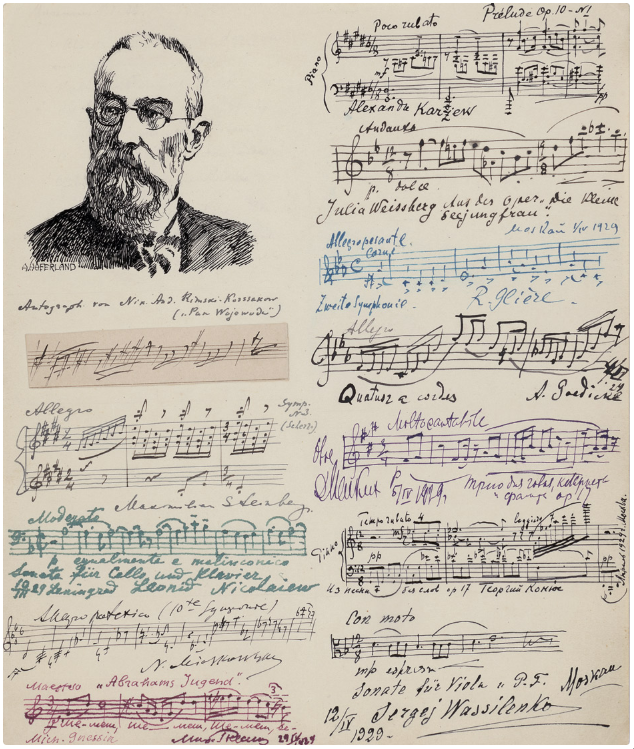 A. OFFERLAND
Autograph von Nik. And. Rimski-Korssakow
("Pan Wojewoda")
Allegro
Symp.
N. 3.
Maximilian Steinberg.
Moderato
p egualmente e malinconico
Sonata für Cello und Klavier
29 Leningrad Leonid Nicolaiew
Allegro patetico (10te Symphonie)
N. Miaskowsky
Maestoso "Abrahams Jugend".
Mich. Gnessin
Poco rubato
Prélude Op. 10 - N1
Piano
mf
pp
Alexander Karzew
Andante
p. dolce
Julia Weissberg Aus der Oper "Die kleine
Seejungfrau".
Moskau 1929
Allegro pesante.
Corni
Zweite Symphonie.
R. Glière.
Allegro
Quatuor a cordes
A. Goedicke
29
Oboe
Molto cantabile
1929.
Трио для гобоя, кларнета
и фагота op. 17
Tempo rubato
Piano
pp
Из песни без слов op 17 Георгий Конюс
Con moto
mp espress
Sonate für Viola u P.F. Moskau
12/IV Sergej Wassilenko
1929.